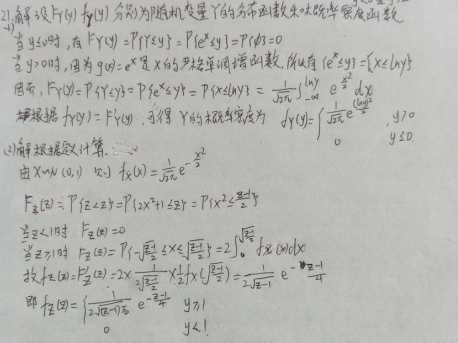 2).解 设 F_Y(y) f_Y(y) 分别为随机变量Y的分布函数和概率密度函数
当y≤0时, 有 F_Y(y)=P{Y≤y}=P{e^x≤y}=P{∅}=0
当y>0时, 因为 g(x)=e^x 是 X的严格单调增函数, 所以有 {e^x≤y}={x≤lny}
因而, F_Y(y)=P{Y≤y}=P{e^x≤y}=P{x≤lny}=1/√2π ∫_{-∞}^{lny} e^{-x²/2} dx
根据 f_Y(y)=F'_Y(y), 可得 Y的概率密度为 f_Y(y)={ 1/√2π e^{-(lny)²/2} , y>0
0 y≤0
(2)解 根据定义计算.
由X~N(0,1) f_X(x)=1/√2π e^{-x²/2}
F_Z(z)=P{Z≤z}=P{2X²+1≤z}=P{X²≤(z-1)/2}
当z<1时 F_Z(z)=0
当z≥1时 F_Z(z)=P{-√((z-1)/2)≤X≤√((z-1)/2)}=2∫_0^{√((z-1)/2)} f_X(x)dx
故 f_Z(z)=F'_Z(z)=2× 1/(2√((z-1)/2)) ×1/2 f_X(√((z-1)/2))= 1/(2√(z-1)) e^{-(z-1)/4}
即 f_Z(z)={ e^{-(z-1)/4} y≥1
0 y<1